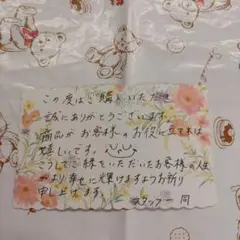 この度はご購入いただき
誠にありがとうございます。
商品が お客様 のお役に立てれば
嬉しいです。
こうしてご縁をいただいたお客様の人生
がより幸せに輝けますようお祈り
申し上げます。
スタッフ一同